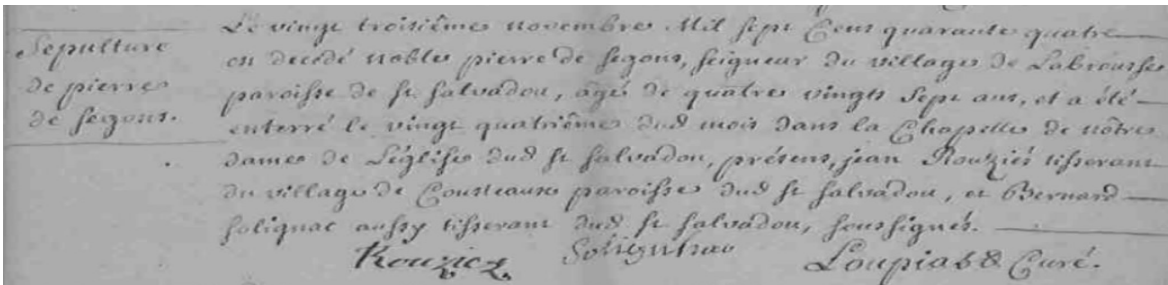 Sepulture
de pierre
de segons.
Le vingt troisiême novembre Mil sept Cens quarante quatre
est decedé noble pierre de segons, seigneur du village de Labrousse
paroisse de st salvadou, agé de quatre vingts sept ans, et a été
enterré le vingt quatriême dud mois dans la Chapelle de nôtre
dame de L'église dud st salvadou, présens, jean Rouziés tisserant
du village de Cousteaux paroisse dud st salvadou, et Bernard
solignac aussy tisserant dud st salvadou, soussignés.
Rouziez Loupias Curé.